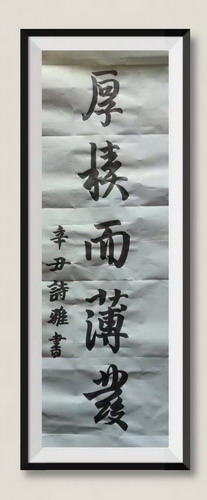 厚積而薄發
辛丑詩雅書